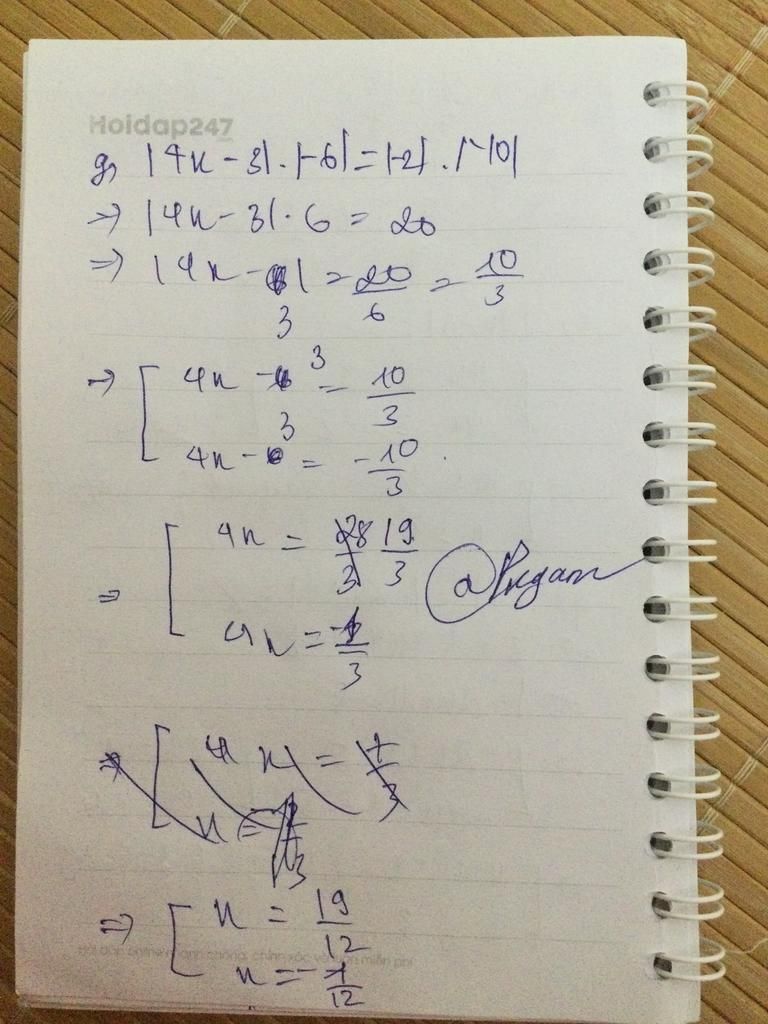 Hoidap247
g, |4x - 3| . |-6| = |-2| . |-10|
=> |4x - 3| . 6 = 20
=> |4x - 3| = 20/6 = 10/3
=> [ 4x - 3 = 10/3
4x - 3 = -10/3
=> [ 4x = 19/3
4x = -1/3
@Pngam
=> [ x = 19/12
x = -1/12